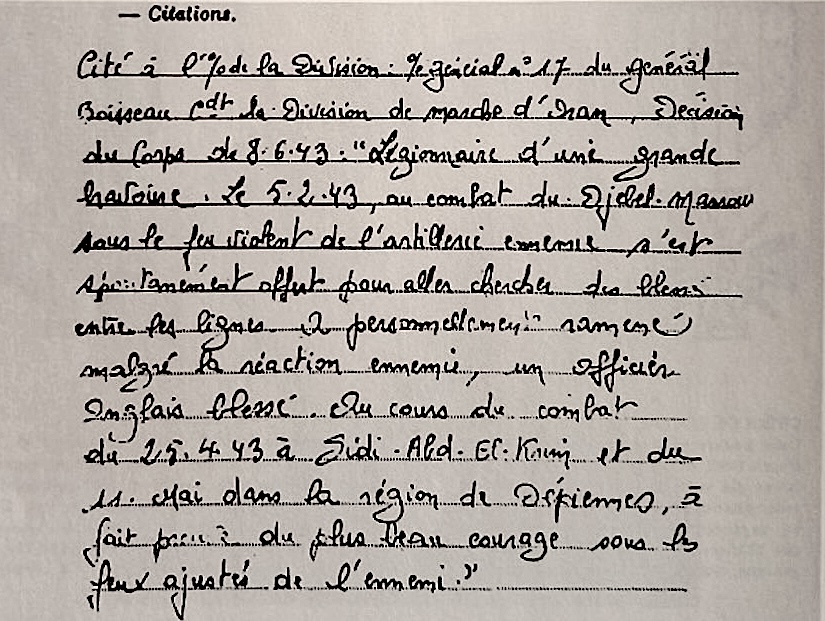 — Citations.
Cité à l'%de la Division: % général n° 17 du général
Boisseau Cdt la Division de marche d'Oran, Décision
du Corps de 8.6.43: "Légionnaire d'une grande
bravoure. Le 5.2.43, au combat du Djebel-Mansour
sous le feu violent de l'artillerie ennemie s'est
spontanément offert pour aller chercher des blessés
entre les lignes. A personnellement ramené
malgré la réaction ennemie, un officier
Anglais blessé. Au cours du combat
du 25.4.43 à Sidi-Abd-El-Krim et du
11. Mai dans la région de Dépiennes, à
fait preuve du plus beau courage sous les
feux ajustés de l'ennemi."